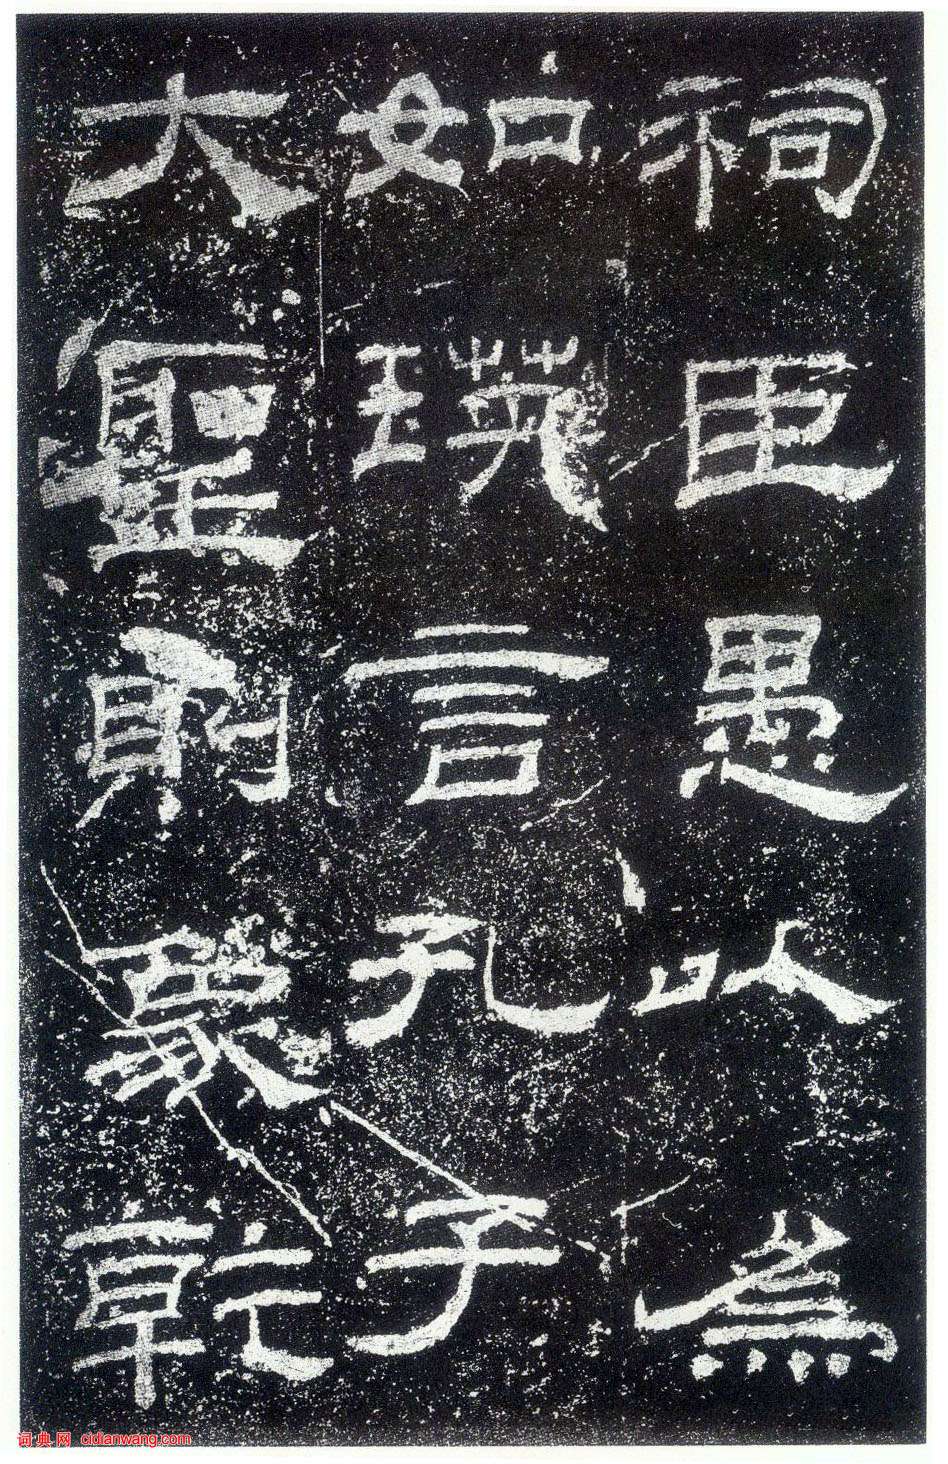 祠臣愚以為
如瑛言孔子
大聖則象乾
词典网 cidianwang.com